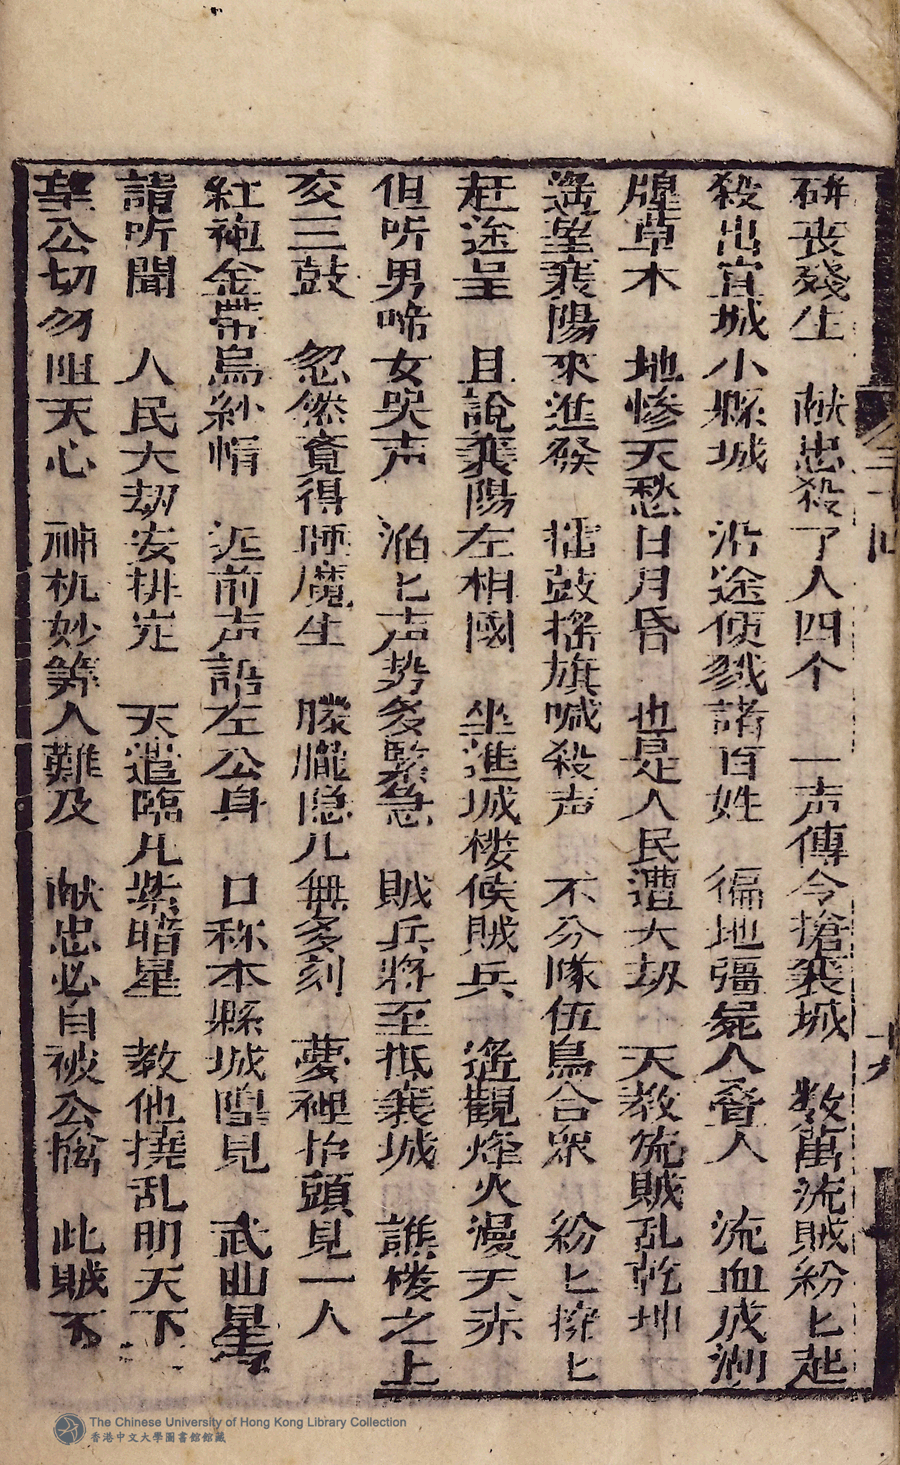 研丧殘生　献忠殺了人四个　一声傳令搶襄城　数萬流賊紛匕起
殺出宜城小縣城　沿途使戮諸百姓　徧地彊屍人疊人　流血成渊
草木　地慘天愁日月昏　也是人民遭大刼　天教流賊乱乾坤
遥望襄陽來進發　擂鼓搖旗喊殺声　不分隊伍烏合眾　紛匕攘匕
赶途呈　且說襄陽左相國　坐進城楼候賊兵　遙觀烽火漫天赤
但听男啼女哭声　滔匕声势多緊急　賊兵將至抵襄城　譙楼之上
交三鼓　忽然竟得睡魔生　朦朧隐儿無多刻　夢裡抬頭見一人
紅袍金帶烏紗帽　近前声語左公身　口称本縣城隍見　武曲星君
請听聞　人民大刼安排定　天遣臨凡紫暗星　教他撓乱明天下
望公切勿阻天心　神机妙筭人難及　献忠必自被公擒　此賊不
三十回
十九
The Chinese University of Hong Kong Library Collection
香港中文大學圖書館館藏